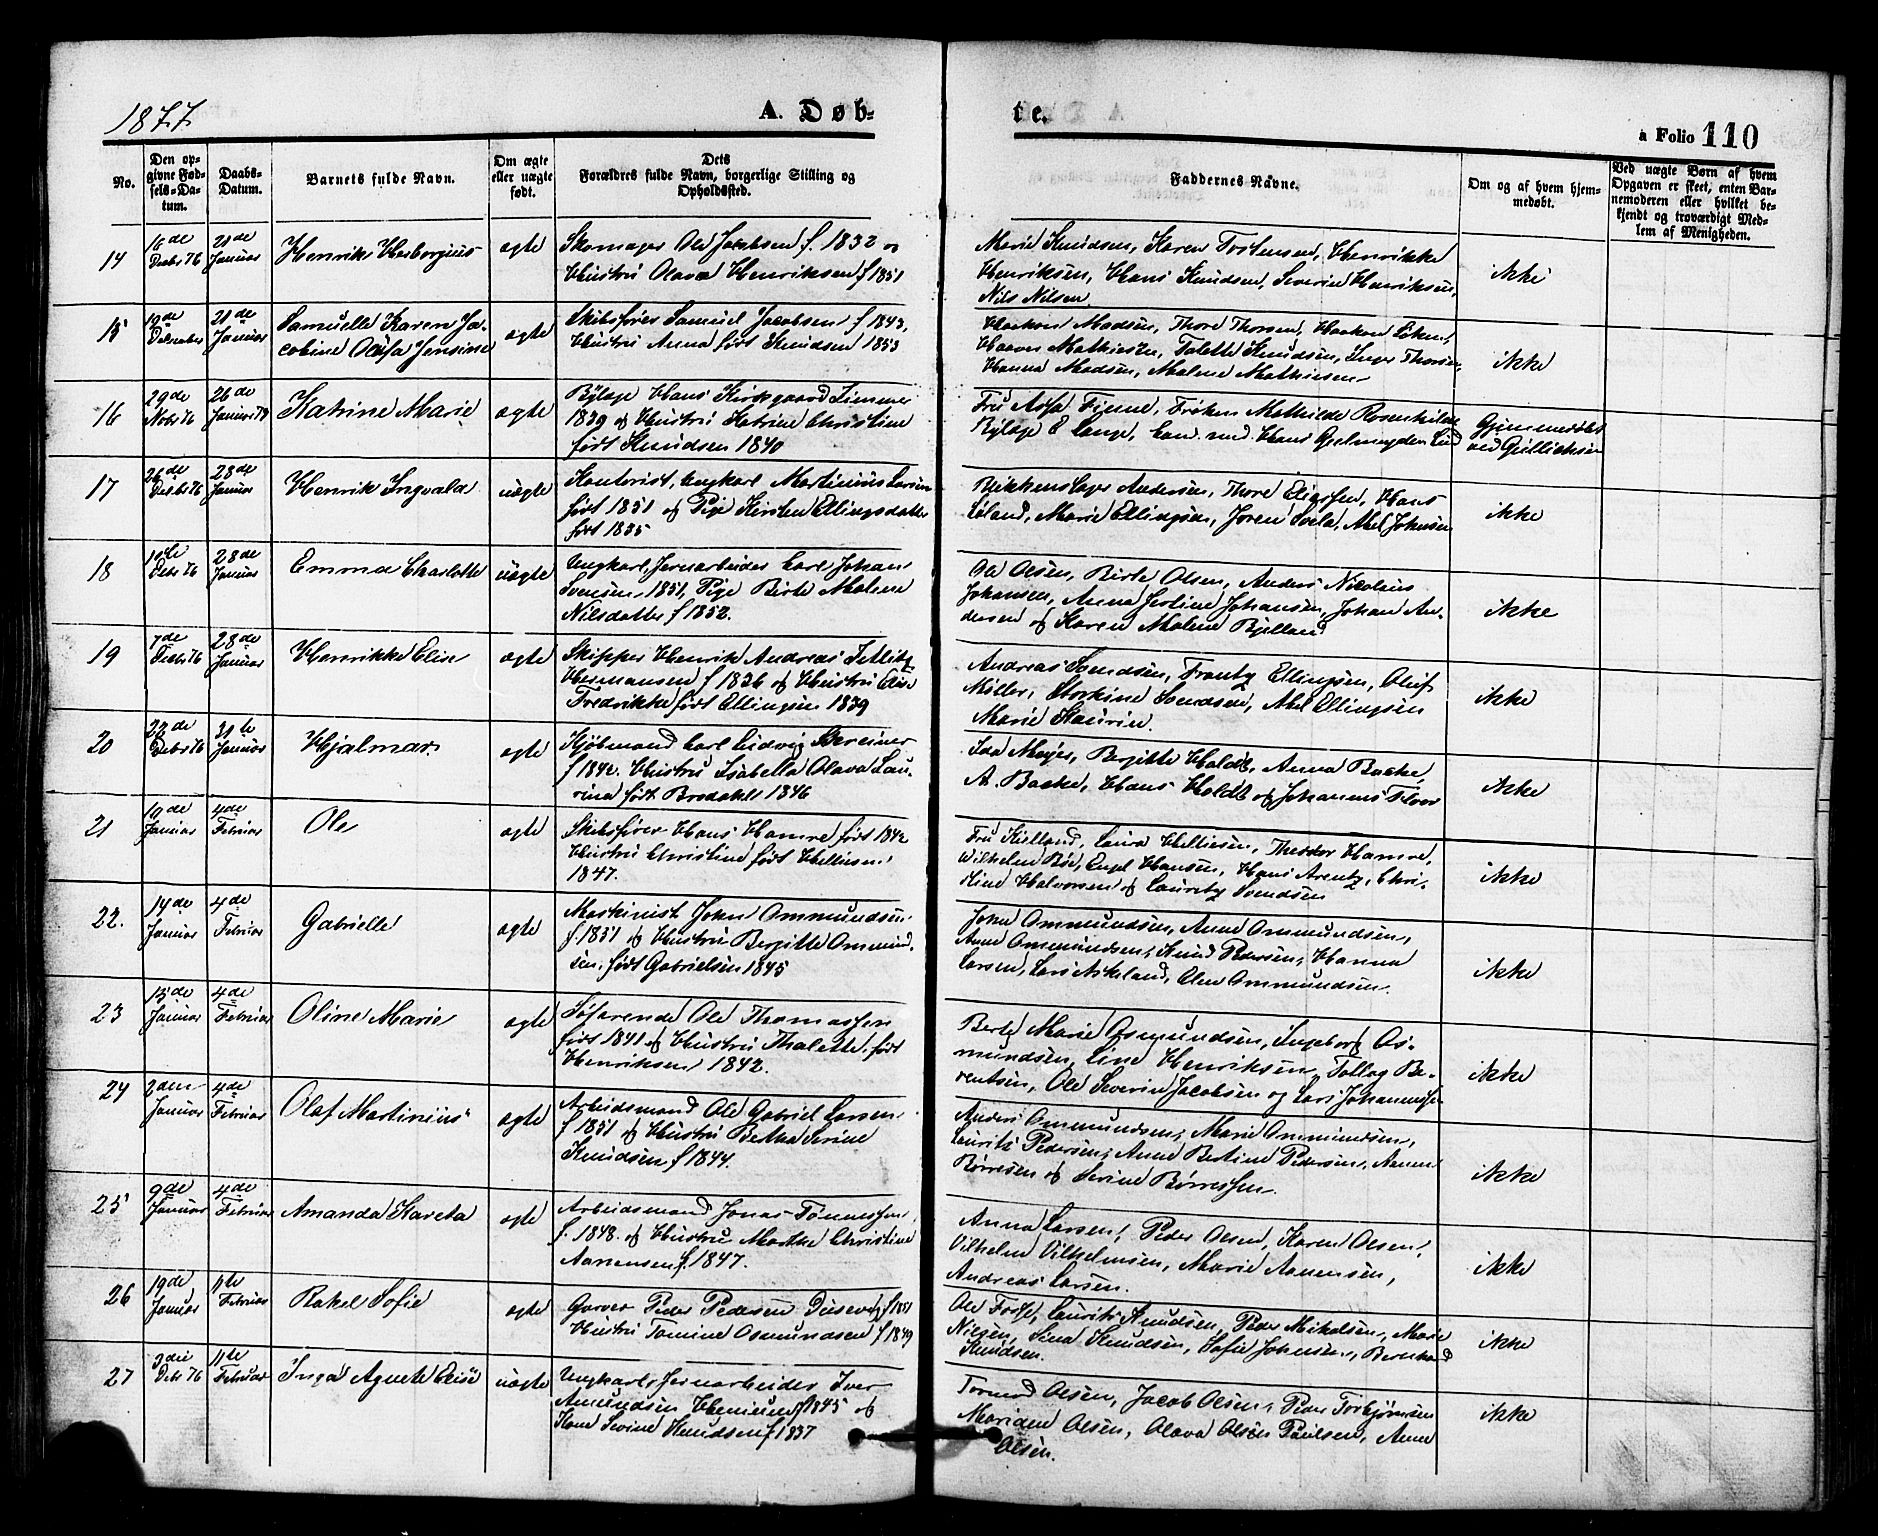 1877
A. Døb-
te.
a Folio 110
No.
Den opgivne Fødsels-Datum.
Daabs-Datum.
Barnets fulde Navn.
Om ægte eller uægte født.
Dets Forældres fulde Navn, borgerlige Stilling og Opholdssted.
Faddernes Navne.
Om og af hvem hjemmedøbt.
Ved uægte Børn af hvem Opgaven er skeet, enten Barnemoderen eller hvilket bekjendt og troværdigt Medlem af Menigheden.
14
16de Decbr 76
21de Januar
Henrik
ægte
Skomager Ole Jacobsen f. 1832 og
Hustru Olava Henriksen f 1851
Marie Knudsen, Karen Torstensen, Henrikke
Henriksen, Hans Knudsen, Severin Henriksen,
Nils Nilsen
ikke
15
21de Januar
Samuelle Karen Ja-
cobine Jensine
ægte
Skibsfører Samuel Jacobsen f 1843,
Hustru Anna født Knudsen 1853
Haakon Madsen, Thore Thorsen, Haakon Eiken,
Mathiesen, Talette Knudsen, Inger Thorsen,
Hanna Madsen, Malene Mathiesen
ikke
16
29de Novbr 76
26de
Katrine Marie
ægte
Byfoged Hans Kirkgaard
1839 og Hustru Katrine Christine
født Knudsen 1840
Fru Frøken Mathilde Rosenkilde
Lange, Cand. med. Hans
17
26de Decbr 76
28de Januar
Henrik Ingvald
uægte
Kontorist, Ungkarl Martinius Larsen
født 1851 og Pige Kirsten Ellingsdatter
født 1835
Blikkenslager Andersen, Thore Hans
Marie Ellingsen, Abel Johnsen
ikke
18
28de Januar
Emma Charlotte
uægte
Ungkarl, Jernarbeider Carl Johan
Svensen 1851, Pige Birte Malene
Nilsdatter f 1852.
Ole Olsen, Birte Olsen, Anders Nicolaus
Johansen, Anna Johansen, Johan An-
dersen og Karen Malene Bjelland
ikke
19
7de 76
28de Januar
Henrikke Elise
ægte
Skipper Henrik Andreas
Hermansen f 1836 og Hustru Elise
Fredrikke født Ellingsen 1839
Andreas Svendsen, Frantz Ellingsen, Oluf
Møller, Svendsen, Abel Ellingsen
Marie
ikke
20
Decbr 76
31te Januar
Hjalmar
ægte
Kjøbmand Carl Ludvig
f 1842. Hustru Isabella Olava Lau-
rina født 1846
Meyer, Bergitte Holdt, Anna Backe,
A. Backe, Hans Holdt og Johannes
ikke
21
Januar
4de Februar
Ole
ægte
Skibsfører Hans Hamre født 1842
Hustru Christine født
1847.
Fru Kielland, Laura Theodor Hamre,
Wilhelm Engel Hansen, Hans Arentz, Chri-
stine Halvorsen og Lauritz Svendsen
ikke
22.
14de Januar
4de Februar
Gabrielle
ægte
Maskinist John Ommundsen
f. 1851 og Hustru Bergitte Ommund-
sen født Gabrielsen 1845
John Ommundsen, Anne Ommundsen,
Anne Ommundsen, Knud Pedersen, Hanna
Larsen, Lars Olene Ommundsen.
ikke
23
15de Januar
4de Februar
Oline Marie
ægte
Søfarende Ole Thomassen
født 1841 og Hustru Thalette født
Henriksen 1842.
Berte Marie Osmundsen, Ingeborg Os-
mundsen, Line Henriksen, Tollag Be-
rentsen, Ole Severin Jacobsen og Lars Johannessen
ikke
24
2den Januar
4de Februar
Olaf Martinius
ægte
Arbeidsmand Ole Gabriel Larsen
f 1851 og Hustru Betha Serine
Knudsen f 1844.
Anders Ommundsen, Marie Ommundsen,
Laurits Pedersen, Anne Bertine Pedersen,
Børresen og Serine Børresen.
ikke
25
9de Januar
4de Februar
Amanda
ægte
Arbeidsmand Jonas Tønnessen
f. 1848. og Hustru Marthe Christine
Aanensen f 1847.
Anna Larsen, Peder Olsen, Karen Olsen,
Vilhelm Vilhelmsen, Marie Aanensen,
Andreas Larsen.
ikke
26
19de Januar
11te Februar
Rakel Sofie
ægte
Garver Peder Pedersen f 1851
Hustru Tomine Osmundsen f 1849
Ole Laurits Knudsen, Peder Mikalsen, Marie
Sina Knudsen, Sofie Johnsen, Bernhard
Knudsen.
ikke
27
3die Debr 76
11te Februar
Inga Agnete Elise
uægte
Ungkarl, Jernarbeider Iver
Amundsen f 1845 og
Serine Knudsen f 1837
Tormod Olsen, Jacob Olsen, Peder Torbjørnsen
Olsen, Olava Olsen Paulsen, Anne
Olsen.
ikke